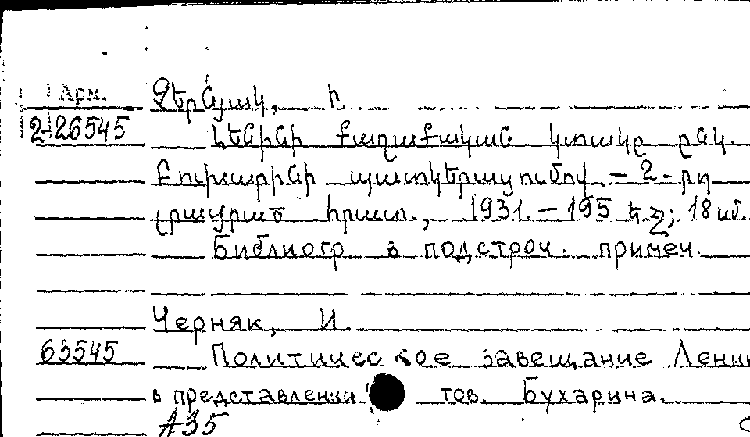 Арм.
Չերնյակ, Ի
2-26545 Լենինի քաղաքական կտակը ընկ.
Բուխարինի պատկերացումով. – 2-րդ
լրացրած հրատ., 1931. – 195 եջ; 18 սմ.
Библиогр в подстроч. примеч.
Черняк, И
63545 Политическое завещание Ленин
в представлении тов. Бухарина.
А35